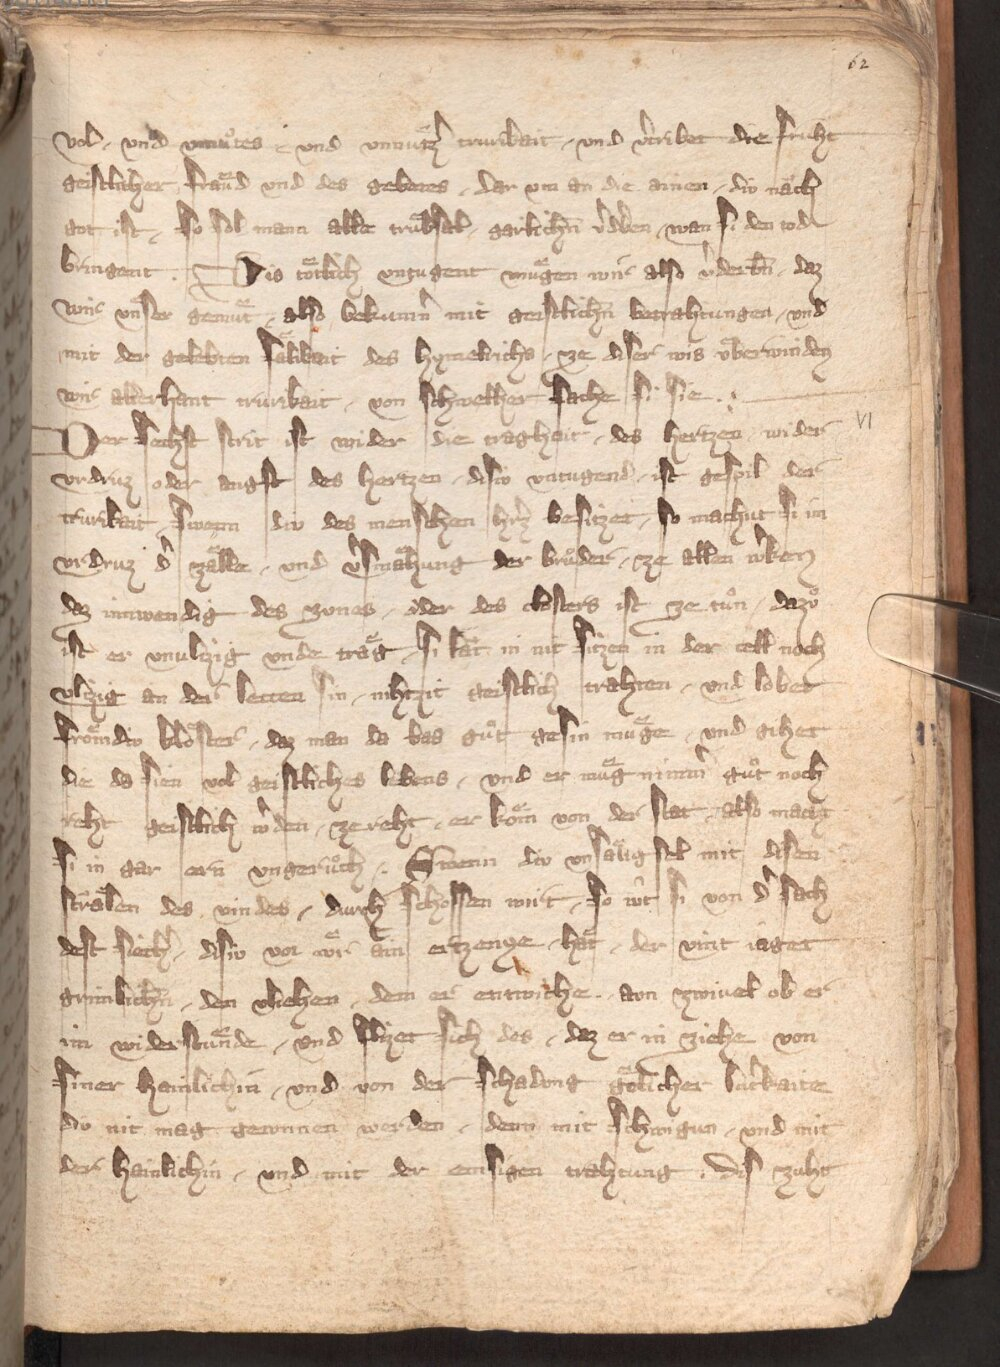 62
vol, vnd vnmuͦtes, vnd vnnuͤtzˀ trurikait, vnd vˀtribet die fruht
geistlicher fraͤud vnd des gebetes, dar vm an die ainen, div nach
got ist, So sol mann alle truͤbsal, garlichn̄ vˀdˀben, wan si den tod
bringent. Dis toͤtlich vntugent muͤgen wir also vˀderbn̄, daz
wir vnser gemuͤt, also bekumn̄ mit geistlichn̄ betrahtungen, vnd
mit der gelebten saͤlikait des hymelrichs, ze diser wis uͤberwinden
wir allerhant trurikait, von schwelher sache si sie.
VI
Der sechst strit ist wider die tragheit, des hertzen, wider
vrdruz oder angst des hertzen, disiv vntugend, ist gespil der
trurikait, swenn div des menschen hˀrz besitzet, so machut si im
vrdruz dˀ zaͤlle, vnd vˀsmaͤhung der bruͦder, ze allen wˀken
daz innwendig des zones, oder des closters ist ze tuͦn, dazuͦ
ist er vnulizig vnde traͤg, Si lat in nit sitzen in der cell noch
vlizig an der leccen sin, nihtzit geistlich trahten, vnd lobet
froͤmdiv kloͤster, daz man da bas guͦt gesin muͤge, vnd gihet
die da sien vol geistliches lebens, vnd er muͤg nimmˀ guͦt noch
reht geistlich wˀden, ze reht, er koͤm von der stat, also macht
si in gar ern vngeruͦch. Swenn div vnsaͤlig sel mit disen
stralen des vindes, durch schossen wirt, so wˀt si von dˀ sach
dest siechˀ, disiv vor wˀ ain ertzenye, hat, der vint iaget
grimlichn̄, den vliehen, dem er entwiche, aun zwivel ob er
im widerstuͤnde, vnd flizet sich des, daz er in ziehe von
siner hainlichin, vnd von der schadong goͤlicher luterkaite
div nit mag gewunnen werden, denn mit schwigun, vnd mit
der hainlichin, vnd mit der emsigen trahtung. Dis zuht